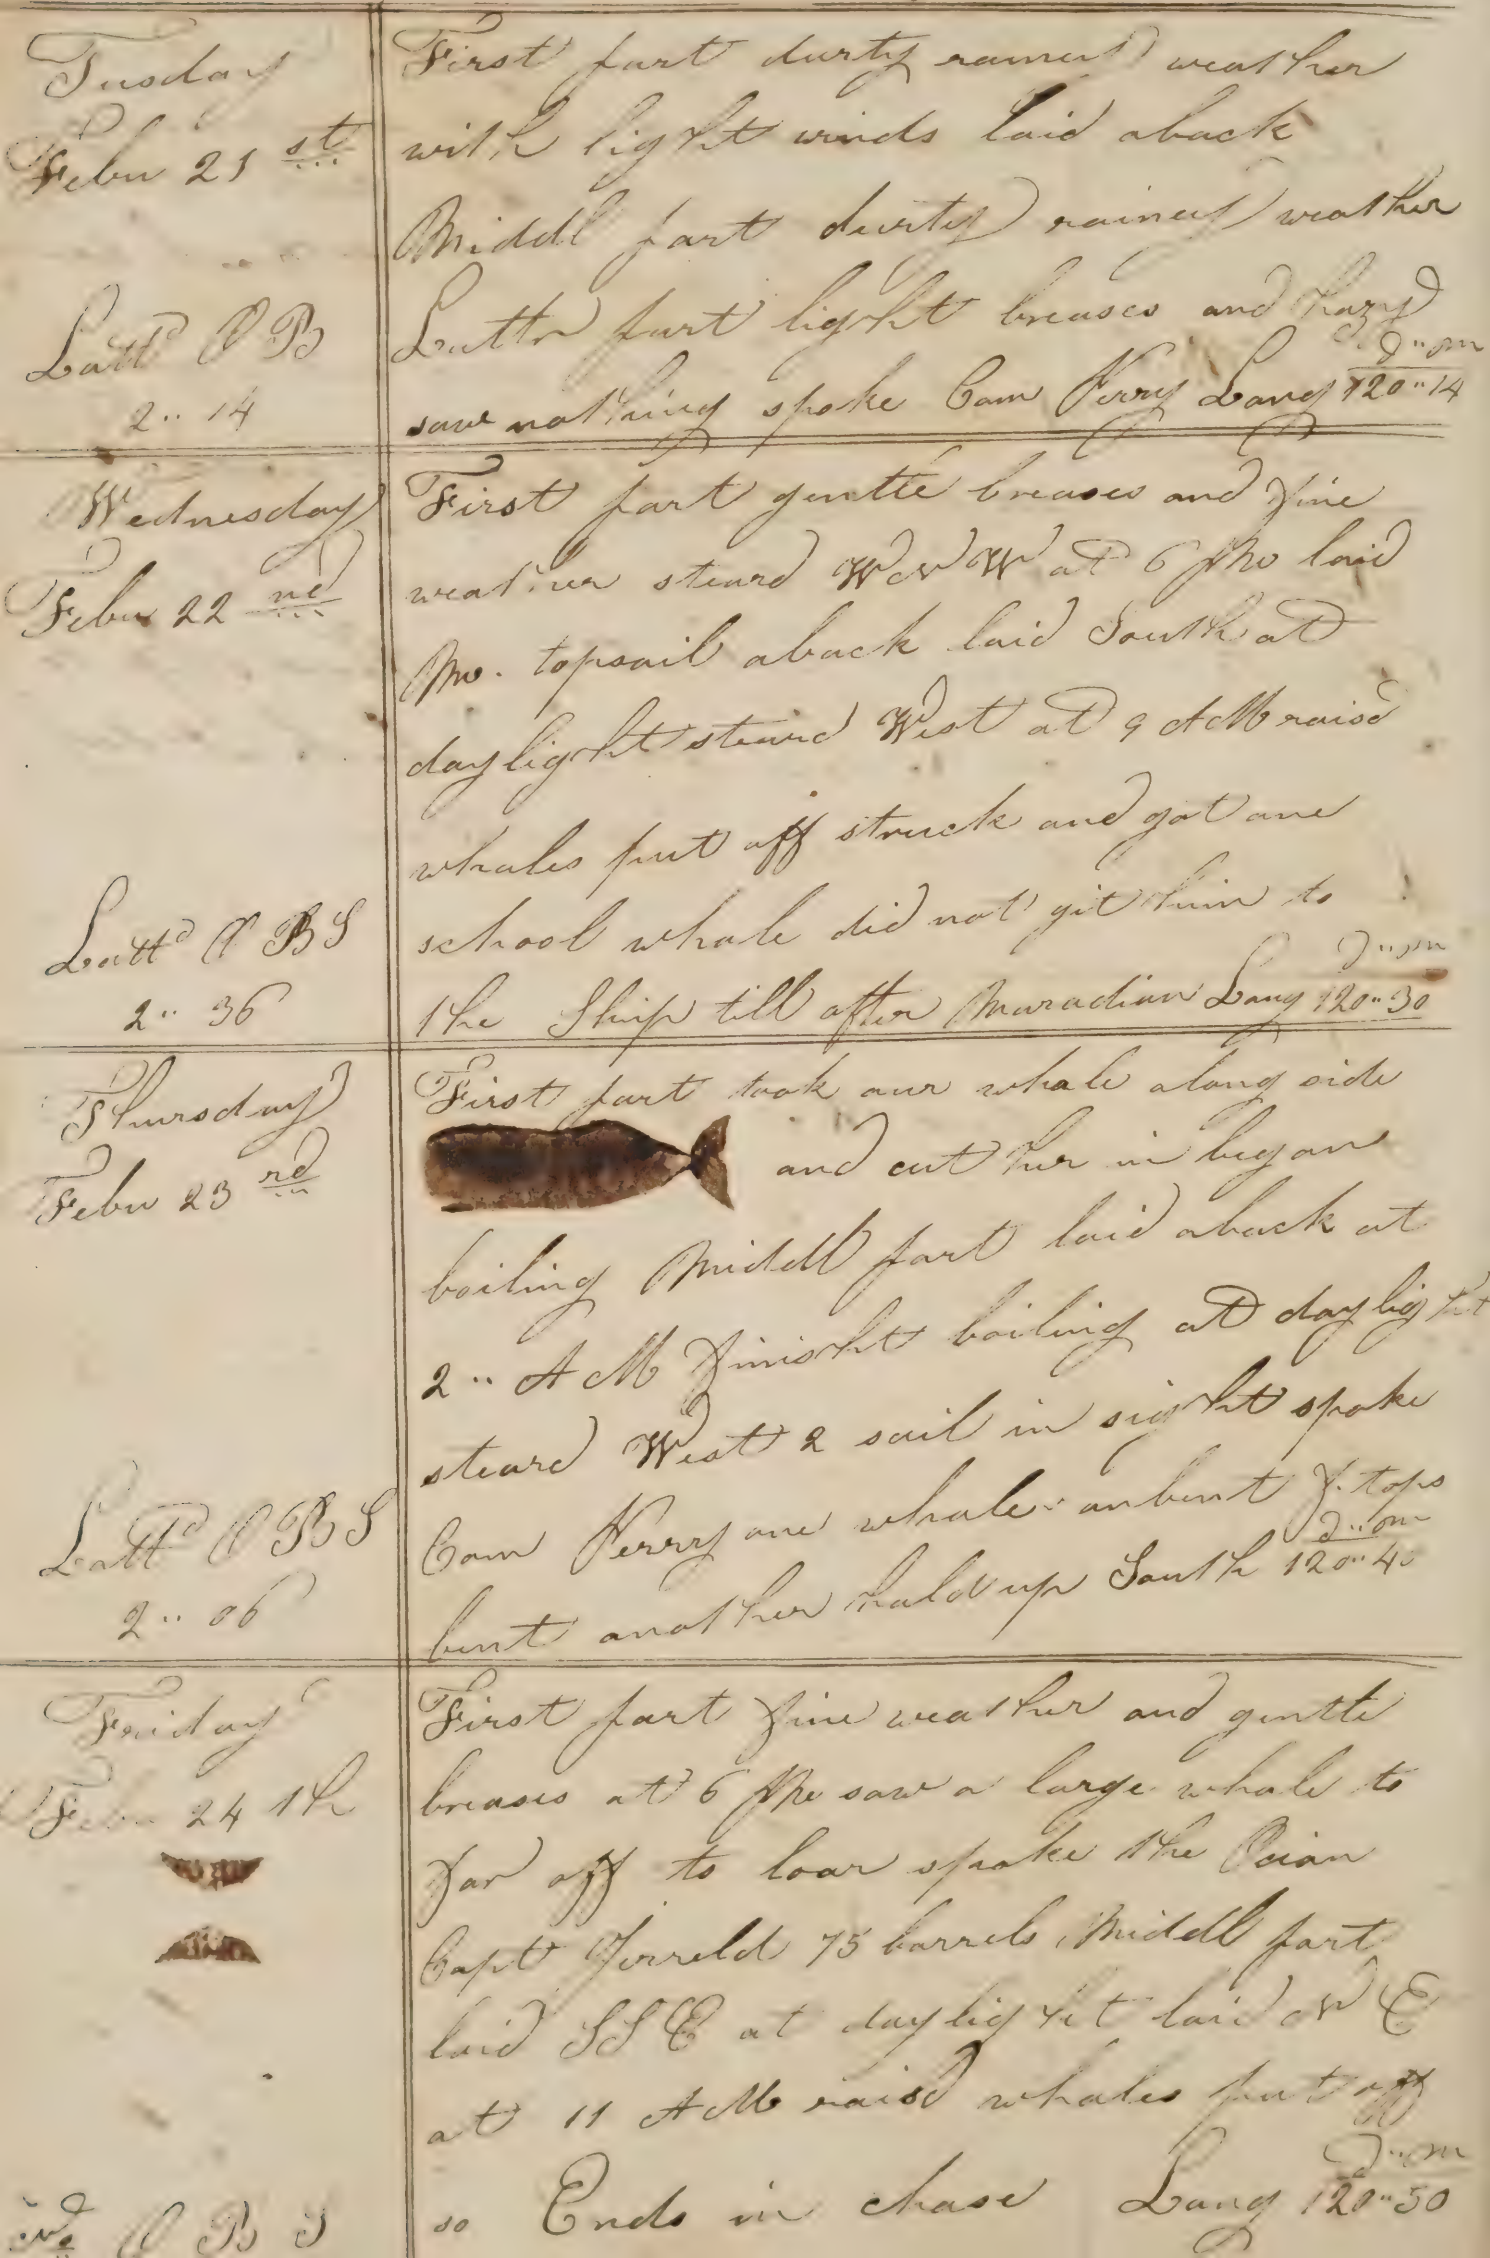 Tusday
Febu 21 st
Lattd O B
2 " 14
First part durty rainey weather
with light winds laid aback
Middl part durty rainey weather
Lattr part light breases and hazy
D " m
saw nothing spoke Com Perry Long 120 " 14
Wednesday
Febu 22 nd
Lattd O B S
2 " 36
First part gentle breases and fine
weather steard WNW at 6 PM laid
M. topsail aback laid South at
daylight steard West at 9 AM raisd
whales put off struck and got one
school whale did not git him to
D " m
the Ship till after Maradian Long 120 " 30
Thursday
Febu 23 rd
Lattd O B S
2 " 06
First part took our whale along side
and cut her in began
boiling Middl part laid aback at
2 " AM finisht boiling at daylight
steard West 2 sail in sight spoke
Com Perry one whale unbent f. tops
D " m
bent another hald up South 120 " 40
Friday
Febu 24 th
O B S
First part fine weather and gentle
breases at 6 PM saw a large whale to
far off to loar spoke the
Capt Jerreld 75 barrels Middl part
laid SSE at daylight laid N E
at 11 AM raisd whales put off
D " m
so Ends in chase Long 120 " 50